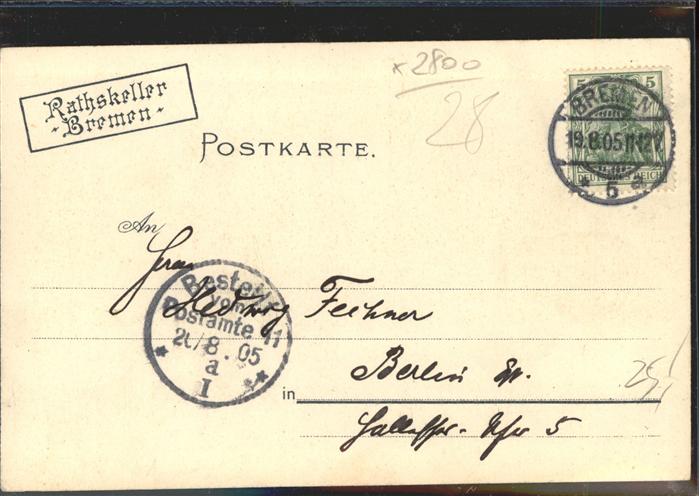 Rathskeller
-Bremen-
* 2800
28
POSTKARTE.
5 5
BREMEN
19.8.05.11-12V
* 5 a
DEUTSCHES REICH
An
Frau
Hedwig Fechner
Bestellt
vom
Postamte 11
20/8.05
a
I
Berlin
in
5